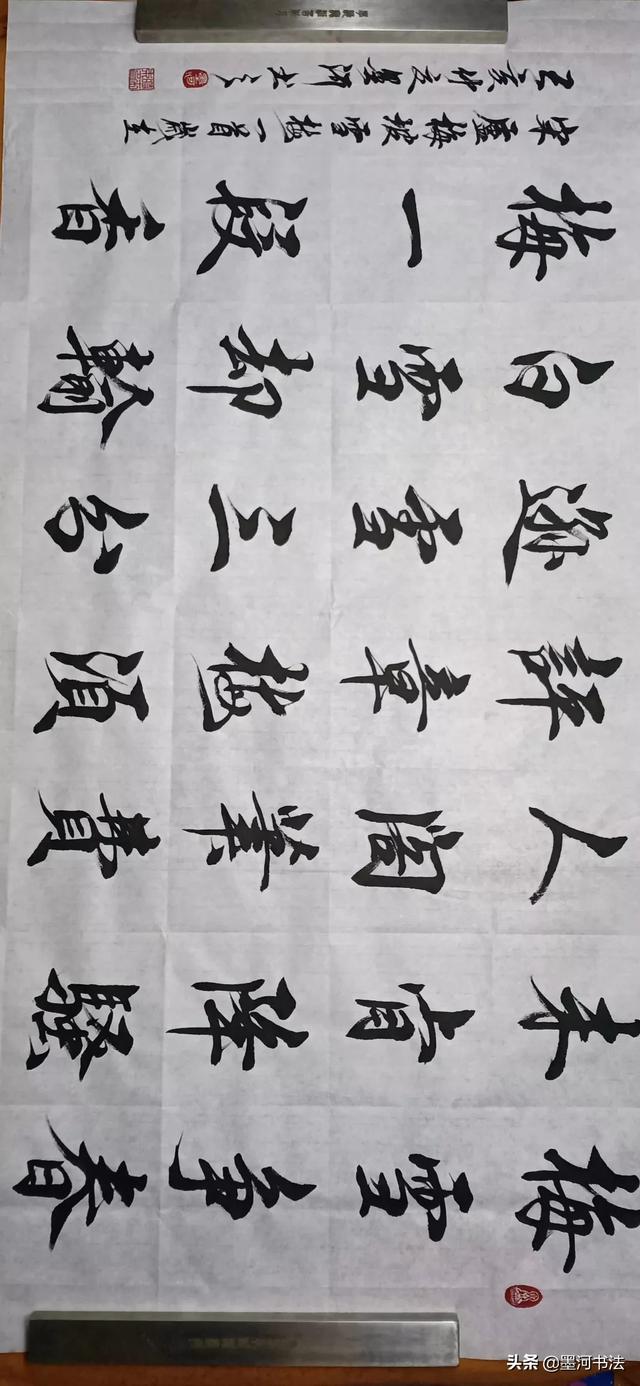 梅雪争春
未肯降騷
人閣筆費
評章梅須
遜雪三分
白雪却輸
梅一段香
宋盧梅坡雪梅一首歲在
壬寅仲夏墨河书之
头条 @墨河书法